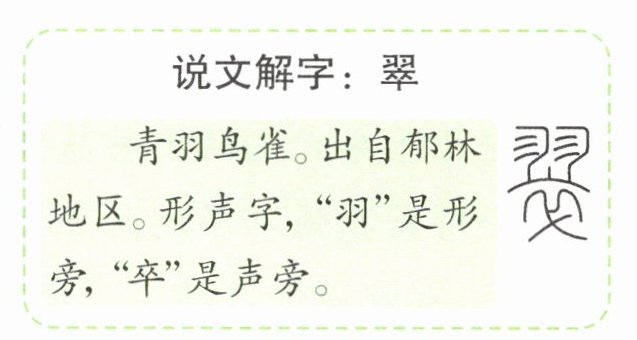 说文解字：翠
青羽鸟雀。出自郁林
地区。形声字，“羽”是形
旁，“卒”是声旁。
翠